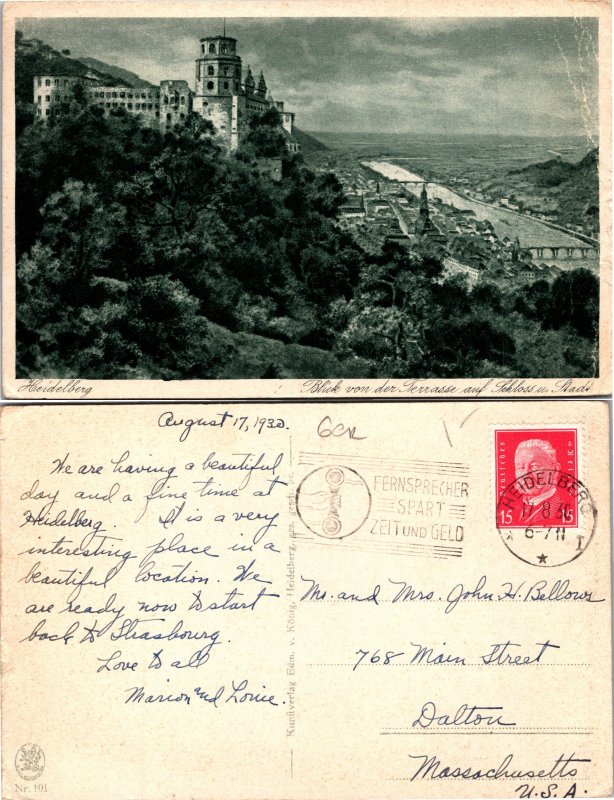 Heidelberg
Blick von der Terrasse auf Schloss u. Stadt
August 17, 1930.
We are having a beautiful
day and a fine time at
Heidelberg. It is a very
interesting place in a
beautiful location. We
are ready now to start
back to Strasbourg.
Love to all
Marion and
Nr. 101
Kunstverlag Edm. v. König, Heidelberg, ges. gesch.
6ck
FERNSPRECHER
SPART
ZEIT UND GELD
DEUTSCHES REICH
15 15
HEIDELBERG
17.8.30
6-7N
* I
Mr. and Mrs. John H. Bellows
768 Main Street
Dalton
Massachusetts
U.S.A.